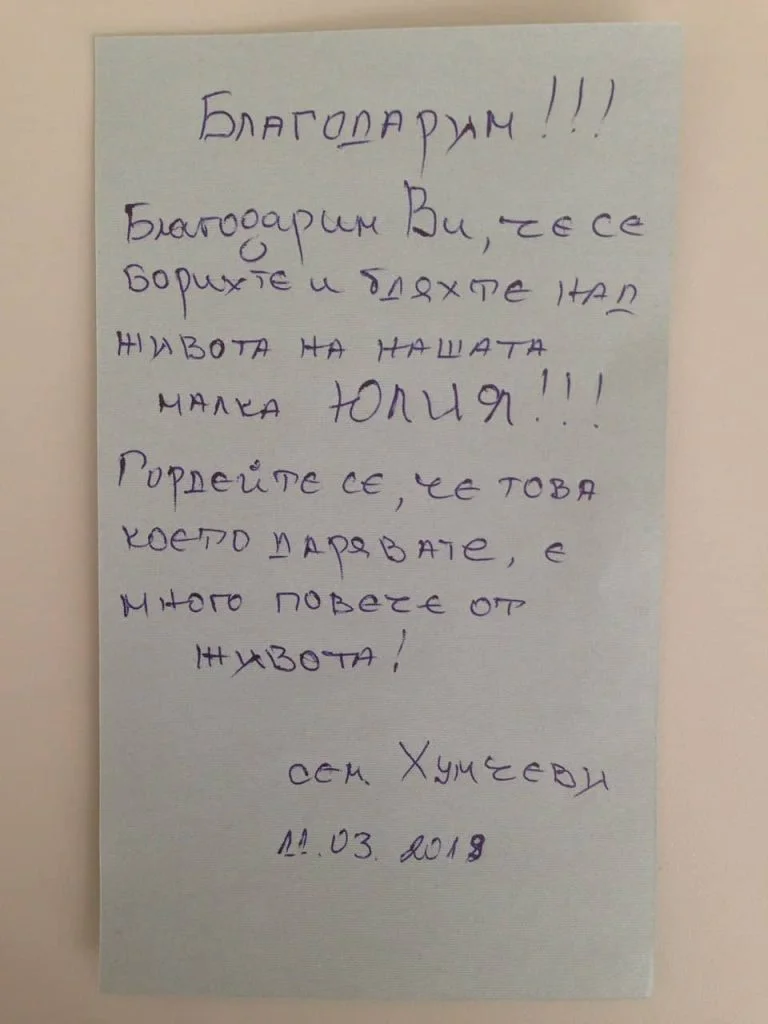 Благодарим!!!
Благодарим Ви, че се
борихте и бдяхте над
живота на нашата
малка ЮЛИЯ!!!
Гордейте се, че това
което дарявате, е
много повече от
живота!
сем. Хумчеви
11.03.2018